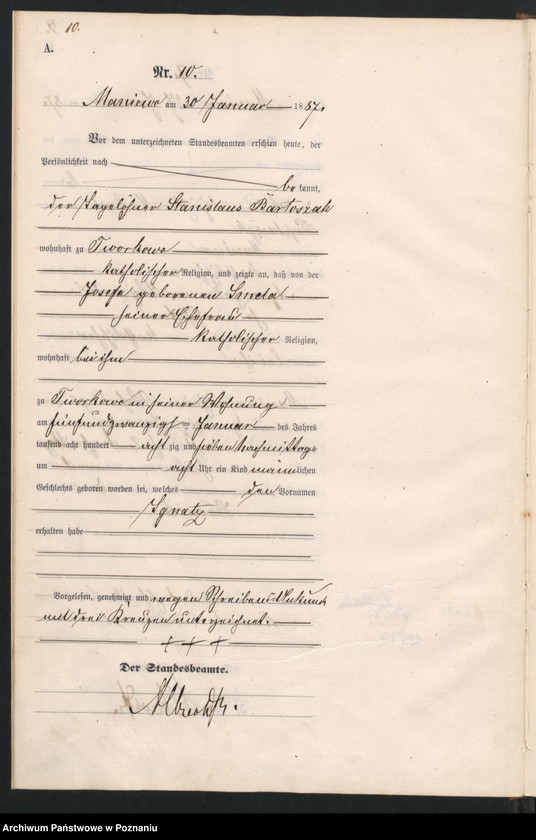 10.
A.
Nr. 10.
Maniewo am 30 Januar 1887.
Vor dem unterzeichneten Standesbeamten erschien heute, der
Persönlichkeit nach
be kannt,
der Tagelöhner Stanislaus Bartoszak
wohnhaft zu Tworkowo
katholischer Religion, und zeigte an, daß von der
Josefa geborenen Smeta
seiner Ehefrau
katholischer Religion,
wohnhaft bei ihm
zu Tworkowo in seiner Wohnung
am fünfundzwanzigsten Januar des Jahres
tausend acht hundert acht zig und sieben Nachmittags
um acht Uhr ein Kind männlichen
Geschlechts geboren worden sei, welches den Vornamen
Ignatz
erhalten habe
Vorgelesen, genehmigt und wegen Schreibens Unkunde
mit drei Kreuzen unterzeichnet.
+ + +
Der Standesbeamte.
Archiwum Państwowe w Poznaniu